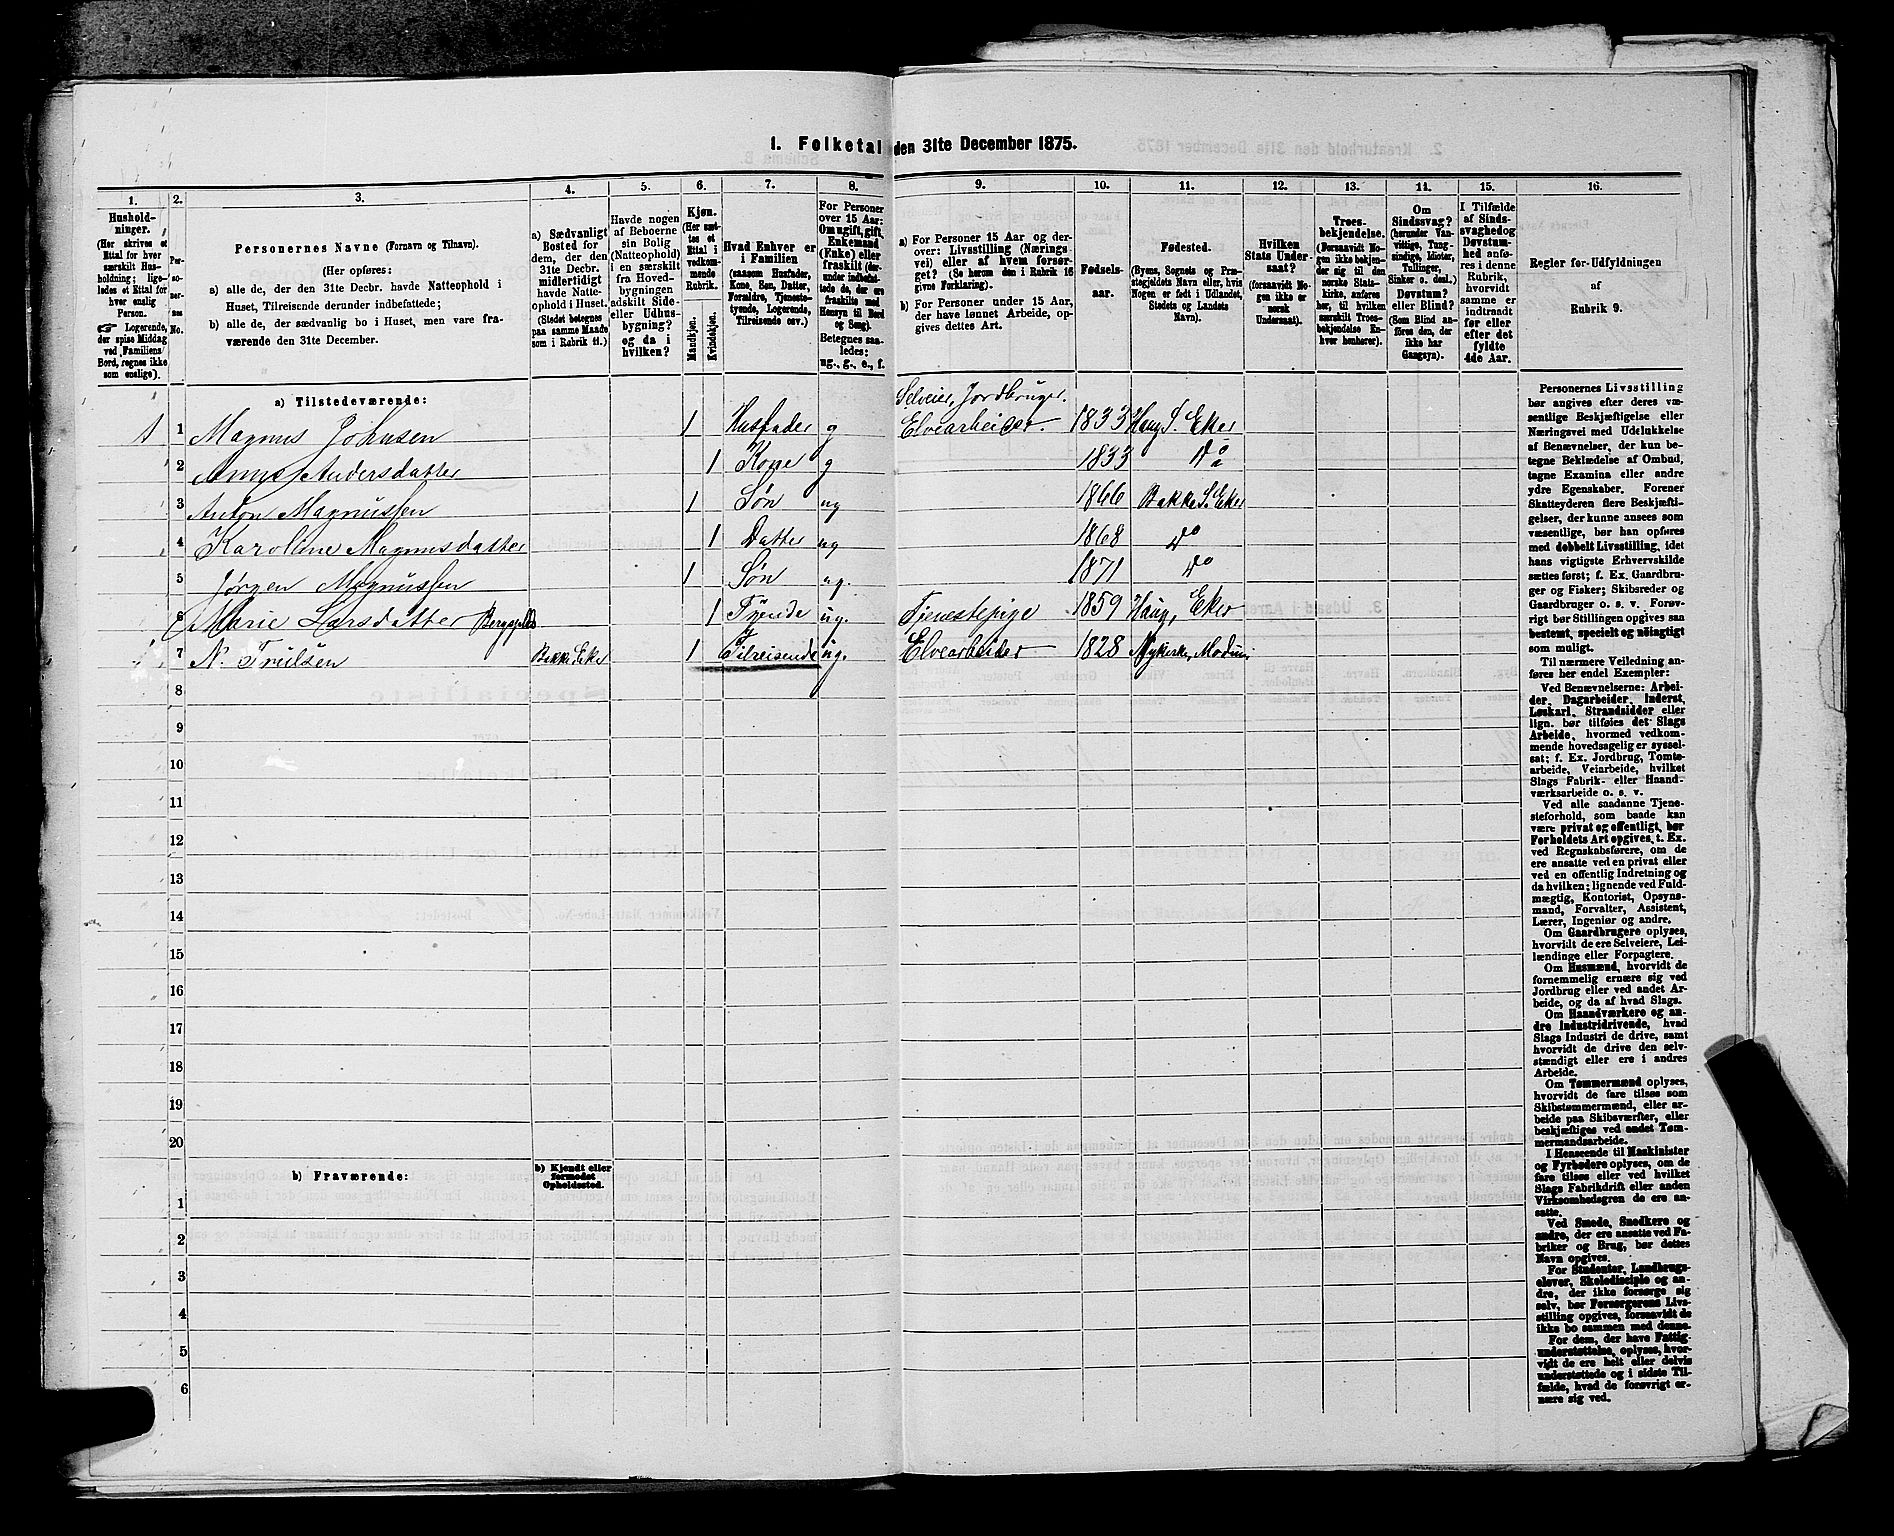 1. Folketal den 31te December 1875.
1. 2. 3. 4. 5. 6. 7. 8. 9. 10. 11. 12. 13. 14. 15. 16.
Hushold-
ninger.
(Her skrives et
Ettal for hver
særskilt Hus-
holdning; lige-
ledes et Ettal for
hver enslig
Person.
☞ Logerende,
der spise Middag
ved Familiens
Bord, regnes ikke
som enslige).
Per-
so-
ner-
nes
No.
Personernes Navne (Fornavn og Tilnavn).
(Her opføres:
a) alle de, der den 31te Decbr. havde Natteophold i
Huset, Tilreisende derunder indbefattede;
b) alle de, der sædvanlig bo i Huset, men vare fra-
værende den 31te December.
a) Sædvanligt
Bosted for
dem, der den
31te Decbr.
midlertidigt
havde Natte-
ophold i Huset.
(Stedet betegnes
paa samme Maade
som i Rubrik 11.)
Havde nogen
af Beboerne
sin Bolig
(Natteophold)
i en særskilt
fra Hoved-
bygningen
adskilt Side-
eller Udhus-
bygning?
og da i
hvilken?
Kjøn.
(Her sæt-
tes et
Ettal i
vedkom-
mende
Rubrik.
Mandkjøn.
Kvindekjøn.
Hvad Enhver er
i Familien
(saasom Husfader,
Kone, Søn, Datter,
Forældre, Tjeneste-
tyende, Logerende,
Tilreisende osv.)
For Personer
over 15 Aar:
Om ugift, gift,
Enkemand
(Enke) eller
fraskilt (der-
under indbefat-
tede de, der ere
fraskilte med
Hensyn til Bord
og Seng).
Betegnes saa-
ledes:
ug., g., e., f.
a) For Personer 15 Aar og der-
over: Livsstilling (Nærings-
vei) eller af hvem forsør-
get? (Se herom den i Rubrik 16
givne Forklaring).
b) For Personer under 15 Aar,
der have lønnet Arbeide, op-
gives dettes Art.
Fødsels-
aar.
Fødested.
(Byens, Sognets og Præ-
stegjeldets Navn eller, hvis
Nogen er født i Udlandet,
Stedets og Landets
Navn).
Hvilken
Stats Under-
saat?
(forsaavidt No-
gen ikke er
norsk
Undersaat).
Troes-
bekjendelse.
(Forsaavidt No-
gen ikke bekjen-
der sig til den
norske Stats-
kirke, anføres
her, til hvilken
særskilt Troes-
bekjendelse En-
hver henhører).
Om
Sindssvag?
(herunder Van-
vittige, Tung-
sindige, Idioter,
Tullinger,
Sinker o. desl.)
Døvstum?
eller Blind?
(Som Blind an-
føres den, der
ikke har
Gangsyn).
I Tilfælde
af Sinds-
svaghed og
Døvstum-
hed anfø-
res i denne
Rubrik,
hvorvidt
samme er
indtraadt
før eller
efter det
fyldte
4de Aar.
Regler for Udfyldningen
af
Rubrik 9.
a) Tilstedeværende:
Selveier, Jordbruger.
1 1 Magnus Johnsen 1 Husfader g Elvearbeider. 1833 Haug S. Eker
2 Anne Andersdatter 1 Kone g 1833 Do
3 Anton Magnussen 1 Søn ug 1866 Bakke S. Eker
4 Karoline Magnusdatter 1 Datter ug 1868 Do
5 Jørgen Magnussen 1 Søn ug. 1871 Do
6 Marie Larsdatter 1 Tyende ug. Tjenestepige 1859 Haug, Eker
7 N. Trulsen Bakke Eker 1 Tilreisende ug. Elvearbeider 1828 Nykirke, Modum
8
9
10
11
12
13
14
15
16
17
18
19
20
b) Fraværende:
b) Kjendt eller
formodet
Opholdssted.
1
2
3
4
5
6
Personernes Livsstilling
bør angives efter deres væ-
sentlige Beskjæftigelse eller
Næringsvei med Udelukkelse
af Benævnelser, der kun be-
tegne Beklædelse af Ombud,
tagne Examina eller andre
ydre Egenskaber. Forener
Skatteyderen flere Beskjæfti-
gelser, der kunne ansees som
væsentlige, bør han opføres
med dobbelt Livsstilling, idet
hans vigtigste Erhvervskilde
sættes først; f. Ex. Gaardbru-
ger og Fisker; Skibsreder og
Gaardbruger o. s. v. Forøv-
rigt bør Stillingen opgives saa
bestemt, specielt og nöiagtigt
som muligt.
Til nærmere Veiledning an-
føres her endel Exempler:
Ved Benævnelserne: Arbei-
der, Dagarbeider, Inderst,
Løskarl, Strandsidder eller
lign. bør tilføies det Slags
Arbeide, hvormed vedkom-
mende hovedsagelig er syssel-
sat; f. Ex. Jordbrug, Tomte-
arbeide, Veiarbeide, hvilket
Slags Fabrik- eller Haand-
værksarbeide o. s. v.
Ved alle saadanne Tjene-
steforhold, som baade kan
være privat og offentligt, bør
Forholdets Art opgives, t. Ex.
ved Regnskabsførere, om de
ere ansatte ved en privat eller
ved en offentlig Indretning og
da hvilken; lignende ved Fuld-
mægtig, Kontorist, Opsyns-
mand, Forvalter, Assistent,
Lærer, Ingeniør og andre.
Om Gaardbrugere oplyses,
hvorvidt de ere Selveiere, Lei-
lændinge eller Forpagtere.
Om Husmænd, hvorvidt de
fornemmelig ernære sig ved
Jordbrug eller ved andet Ar-
beide, og da af hvad Slags.
Om Haandværkere og an-
dre industridrivende, hvad
Slags Industri de drive, samt
hvorvidt de drive den selv-
stændigt eller ere i andres
Arbeide.
Om Tømmermænd oplyses,
hvorvidt de fare tilsøs som
Skibstømmermænd, eller ar-
beide paa Skibsværfter, eller
beskjæftiges ved andet Tøm-
mermandsarbeide.
I Henseende til Maskinister
og Fyrbødere oplyses, om de
fare tilsøs eller ved hvilket
Slags Fabrikdrift eller anden
Virksomhedsgren de ere an-
satte.
Ved Smede, Snedkere og
andre, der ere ansatte ved Fa-
briker og Brug, bør dettes
Navn opgives.
For Studenter, Landbrugs-
elever, Skoledisciple og an-
dre, der ikke forsørge sig
selv, bør Forsørgerens Livs-
stilling opgives, forsaavidt de
ikke bo sammen med denne.
For dem, der have Fattig-
understøttelse, oplyses, hvor-
vidt de ere helt eller delvis
understøttede og i sidste Til-
fælde, hvad de forøvrigt er-
nære sig ved.